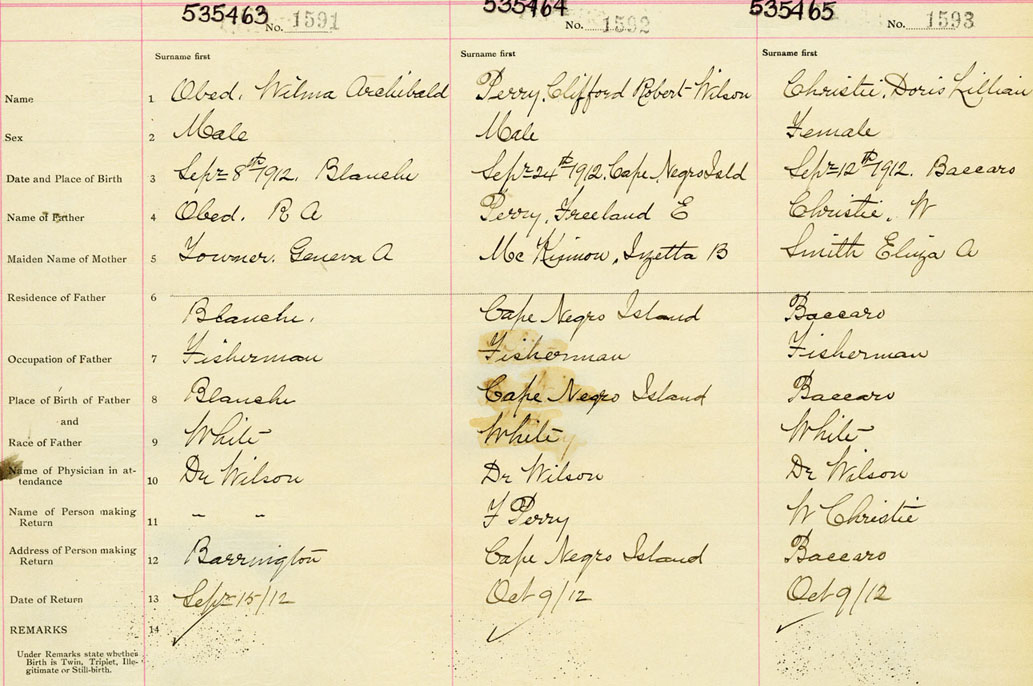 535463 No. 1591 535464 No. 1592 535465 No. 1593
Surname first Surname first Surname first
Name 1 Obed, Wilma Archibald Perry, Clifford Robert Wilson Christie, Doris Lillian
Sex 2 Male Male Female
Date and Place of Birth 3 Sept 8th 1912. Blanche Sept 24th 1912. Cape Negro Isld Sept 12th 1912. Baccaro
Name of Father 4 Obed, R A Perry, Freeland E Christie, W
Maiden Name of Mother 5 Towner, Geneva A Mc Kinnon, Izetta B Smith Eliza A
Residence of Father 6
Blanche, Cape Negro Island Baccaro
Occupation of Father 7 Fisherman Fisherman Fisherman
Place of Birth of Father 8 Blanche Cape Negro Island Baccaro
and
Race of Father 9 White White White
Name of Physician in at-
tendance 10 Dr Wilson Dr Wilson Dr Wilson
Name of Person making
Return 11 " " F Perry W Christie
Address of Person making
Return 12 Barrington Cape Negro Island Baccaro
Date of Return 13 Sept 15/12 Oct 9/12 Oct 9/12
REMARKS 14
Under Remarks state whether
Birth is Twin, Triplet, Ille-
gitimate or Still-birth.